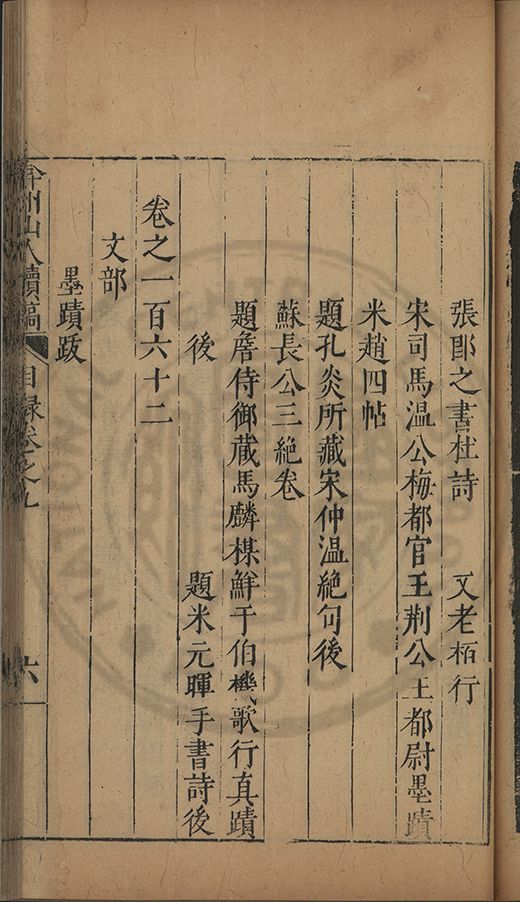 張即之書杜詩　又老栢行
宋司馬温公梅都官王荆公王都尉墨蹟
米趙四帖
題孔炎所藏宋仲温絶句後
蘇長公三絶卷
題詹侍御藏馬麟楳鮮于伯機歌行真蹟
後　題米元暉手書詩後
卷之一百六十二
文部
墨蹟跋
弇州山人續稿　目録卷之九　六